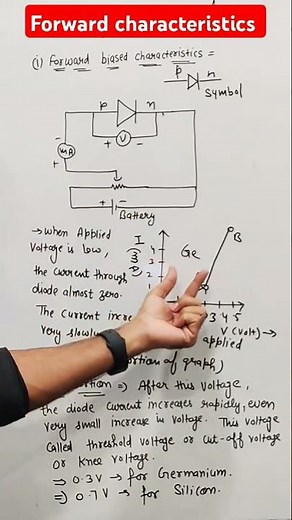 Forward characteristics
(i) Forward biased characteristics =
p n
Symbol
p n
+ V -
-
mA
+
+ -
Battery
→ when Applied
Voltage is low,
the current through
diode almost zero.
I
4
3
2
1
Ge
B
3 4 5
V (volt) →
The current incre
very slowly applied
of graph)
⇒ After this voltage,
the diode current increases rapidly, even
very small increase in voltage. This voltage
called threshold voltage or cut-off voltage
or knee voltage.
⇒ 0.3V → for Germanium.
⇒ 0.7V → for Silicon.